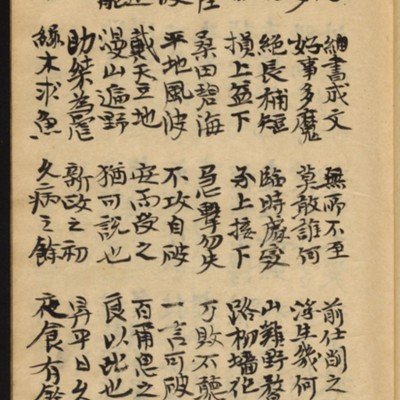 書成文 無所不至 前仕削之
好事多魔 莫敢誰何 浮生幾何
絶長補短 臨時處變 山雞野鶩
損上益下 承上接下 路柳墻花
桑田碧海 擊勿失 敗不聽
平地風波 不攻自破 一言可破
戴天立地 而 之 百爾思之
漫山遍野 猶可說也 良以此也
助桀為虐 新政之初 昇平日久
緣木求魚 久病之餘 夜食有餘